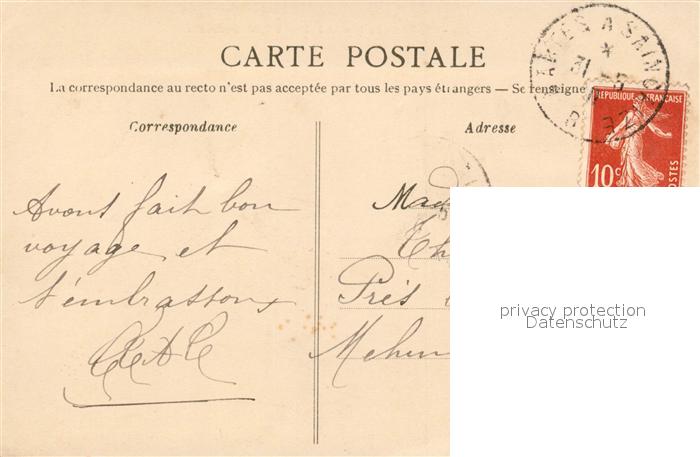 CARTE POSTALE
La correspondance au recto n'est pas acceptée par tous les pays étrangers — Se renseigne
Correspondance
Adresse
Avons fait bon
voyage et
t'embrassons
Mad
Th
Près
Mehun
NTES A SAINC
31
RÉPUBLIQUE FRANÇAISE
10c
POSTES
privacy protection
Datenschutz